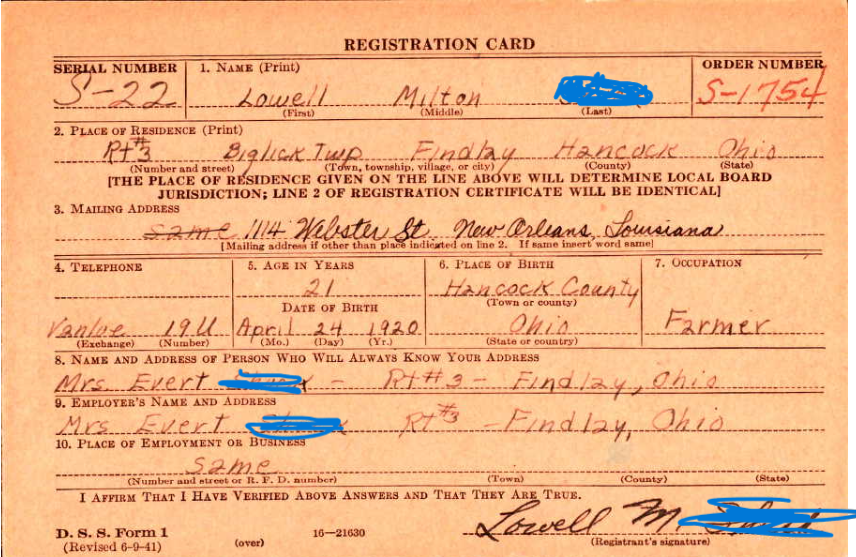 REGISTRATION CARD
SERIAL NUMBER 1. NAME (Print) ORDER NUMBER
S-22 Lowell Milton S-1754
(First) (Middle) (Last)
2. PLACE OF RESIDENCE (Print)
Rt#3 Biglick Twp Findlay Hancock Ohio
(Number and street) (Town, township, village, or city) (County) (State)
[THE PLACE OF RESIDENCE GIVEN ON THE LINE ABOVE WILL DETERMINE LOCAL BOARD
JURISDICTION; LINE 2 OF REGISTRATION CERTIFICATE WILL BE IDENTICAL]
3. MAILING ADDRESS
same 1114 Webster St. New Orleans, Louisiana
[Mailing address if other than place indicated on line 2. If same insert word same]
4. TELEPHONE 5. AGE IN YEARS 6. PLACE OF BIRTH 7. OCCUPATION
21 Hancock County
(Town or county)
DATE OF BIRTH
Vanlue 19U April 24 1920 Ohio Farmer
(Exchange) (Number) (Mo.) (Day) (Yr.) (State or country)
8. NAME AND ADDRESS OF PERSON WHO WILL ALWAYS KNOW YOUR ADDRESS
Mrs Evert - Rt#3 - Findlay, Ohio
9. EMPLOYER'S NAME AND ADDRESS
Mrs Evert Rt#3 - Findlay, Ohio
10. PLACE OF EMPLOYMENT OR BUSINESS
same
(Number and street or R. F. D. number) (Town) (County) (State)
I AFFIRM THAT I HAVE VERIFIED ABOVE ANSWERS AND THAT THEY ARE TRUE.
Lowell M.
D. S. S. Form 1 16-21630
(Revised 6-9-41) (over) (Registrant's signature)